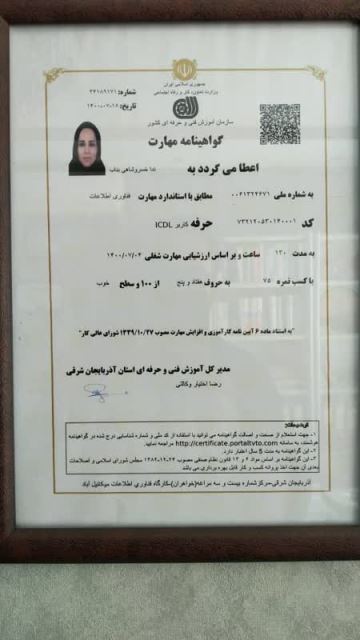 جمهوری اسلامی ایران
وزارت تعاون، کار و رفاه اجتماعی
شماره: ۳۴۱۸۹۱۷۱
تاریخ: ۱۴۰۰/۰۷/۱۶
سازمان آموزش فنی و حرفه ای کشور
گواهینامه مهارت
اعطا می گردد به
ندا خسروشاهی بناب
به شماره ملی ۰۰۶۱۳۲۴۶۷۱ مطابق با استاندارد مهارت فناوری اطلاعات
کد ۷۳۲۱۲۰۵۳۰۱۴۰۰۰۱ حرفه کاربر ICDL
به مدت ۱۳۰ ساعت و بر اساس ارزشیابی مهارت شغلی ۱۴۰۰/۰۷/۰۴
با کسب نمره ۷۵ به حروف هفتاد و پنج از ۱۰۰ و سطح خوب
"به استناد ماده ۶ آیین نامه کارآموزی و افزایش مهارت مصوب ۱۳۳۹/۱۰/۲۷ شورای عالی کار"
مدیر کل آموزش فنی و حرفه ای استان آذربایجان شرقی
رضا اختیار وکالتی
۱- جهت استعلام از صحت و اصالت گواهینامه می توانید با استفاده از کد ملی و شماره شناسایی درج شده در گواهینامه
هوشمند، به سامانه http://certificate.portaltvto.com مراجعه نمایید.
۲- این گواهینامه به مدت 5 سال اعتبار دارد.
۳- این گواهینامه بر اساس مواد ۶ و ۱۲ قانون نظام صنفی مصوب ۱۳۸۲-۱۲-۲۴ مجلس شورای اسلامی و اصلاحات
بعدی آن جهت اخذ پروانه کسب و کار قابل بهره برداری می باشد
آذربایجان شرقی-مرکزشماره بیست و سه مراغه(خواهران)-کارگاه فناوری اطلاعات میکائیل آباد